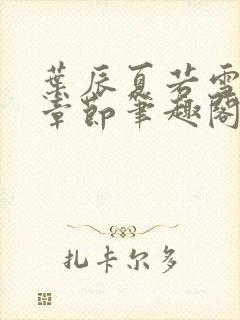 葉辰夏若雪
章節筆趣閣
扎卡尔多